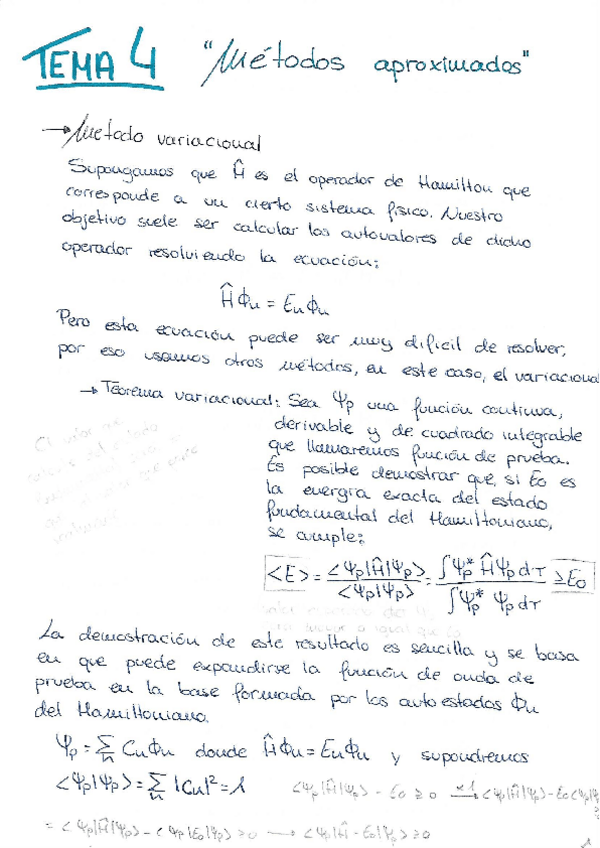 TEMA 4 "Métodos aproximados"
→ Metodo variacional
Supongamos que Ĥ es el operador de Hamilton que
corresponde a un cierto sistema físico. Nuestro
objetivo suele ser calcular los autovalores de dicho
operador resolviendo la ecuación:
Ĥ Φn = En Φn
Pero esta ecuación puede ser muy dificil de resolver,
por eso usamos otros métodos, en este caso, el variacional
→ Teorema variacional: Sea Ψp una función continua,
derivable y de cuadrado integrable
que llamaremos función de prueba.
Es posible demostrar que, si Eo es
la energía exacta del estado
fundamental del Hamiltoniano,
se cumple:
<E> = <Ψp|Ĥ|Ψp> / <Ψp|Ψp> = ∫Ψp* Ĥ Ψp dτ / ∫Ψp* Ψp dτ ≥ Eo
La demostración de este resultado es sencilla y se basa
en que puede expandirse la función de onda de
prueba en la base formada por los autoestados Φn
del Hamiltoniano.
Ψp = Σn Cn Φn donde Ĥ Φn = En Φn y supondremos
<Ψp|Ψp> = Σn |Cn|² = 1 <Ψp|Ĥ|Ψp> - Eo ≥ 0 →(x1) <Ψp|Ĥ|Ψp> - Eo <Ψp|
= <Ψp|Ĥ|Ψp> - <Ψp|Eo|Ψp> ≥ 0 → <Ψp|Ĥ - Eo|Ψp> ≥ 0